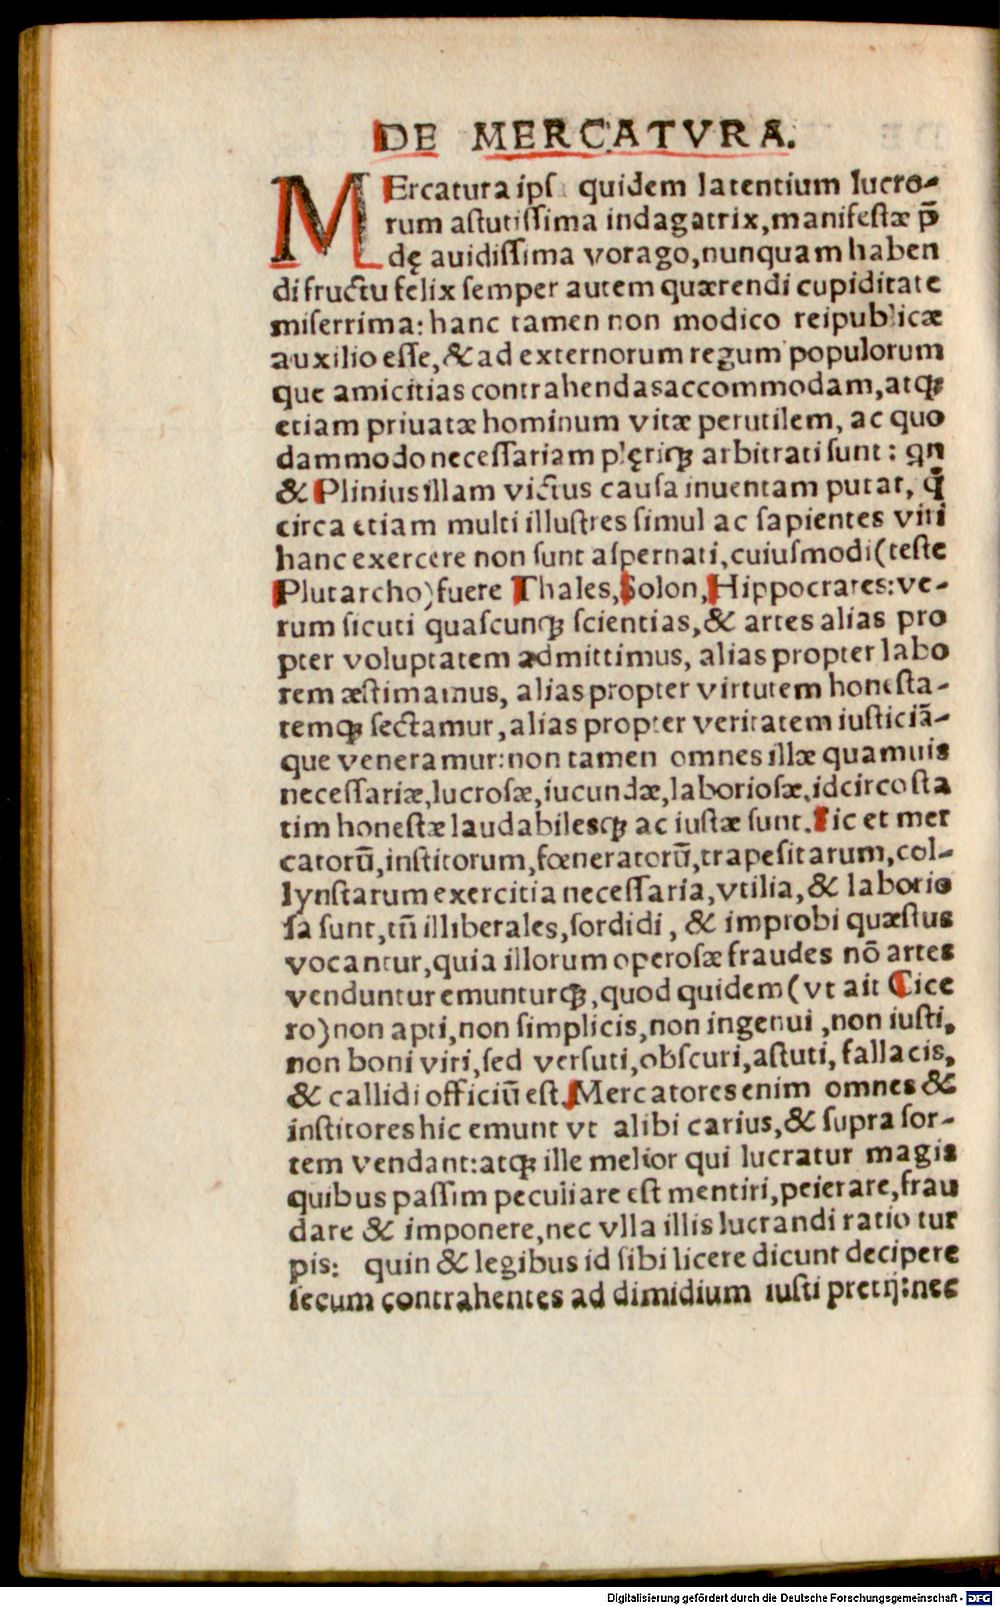 DE MERCATVRA.
MErcatura ips quidem latentium lucro-
rum astutissima indagatrix, manifestæ p̄
dę auidissima vorago, nunquam haben
di fructu felix semper autem quærendi cupiditate
miserrima: hanc tamen non modico reipublicæ
auxilio esse, & ad externorum regum populorum
que amicitias contrahendas accommodam, atqꝫ
etiam priuatæ hominum vitæ perutilem, ac quo
dammodo necessariam plęriqꝫ arbitrati sunt: qn̄
& Plinius illam victus causa inuentam putat, q̄
circa etiam multi illustres simul ac sapientes viri
hanc exercere non sunt aspernati, cuiusmodi (teste
Plutarcho) fuere Thales, Solon, Hippocrates: ve-
rum sicuti quascunqꝫ scientias, & artes alias pro
pter voluptatem admittimus, alias propter labo
rem æstimamus, alias propter virtutem honesta-
temqꝫ sectamur, alias propter veritatem iusticiā-
que veneramur: non tamen omnes illæ quamuis
necessariæ, lucrosæ, iucundæ, laboriosæ, idcirco sta
tim honestæ laudabilesqꝫ ac iustæ sunt. Sic et mer
catorū, institorum, fœneratorū, trapesitarum, col-
lynstarum exercitia necessaria, vtilia, & laborio
sa sunt, tn̄ illiberales, sordidi, & improbi quæstus
vocantur, quia illorum operosæ fraudes nō artes
venduntur emunturqꝫ, quod quidem (vt ait Cice
ro) non apti, non simplicis, non ingenui, non iusti,
non boni viri, sed versuti, obscuri, astuti, fallacis,
& callidi officiū est. Mercatores enim omnes &
institores hic emunt vt alibi carius, & supra sor-
tem vendant: atqꝫ ille melior qui lucratur magis
quibus passim peculiare est mentiri, peierare, frau
dare & imponere, nec vlla illis lucrandi ratio tur
pis: quin & legibus id sibi licere dicunt decipere
secum contrahentes ad dimidium iusti pretij: nec
Digitalisierung gefördert durch die Deutsche Forschungsgemeinschaft - DFG